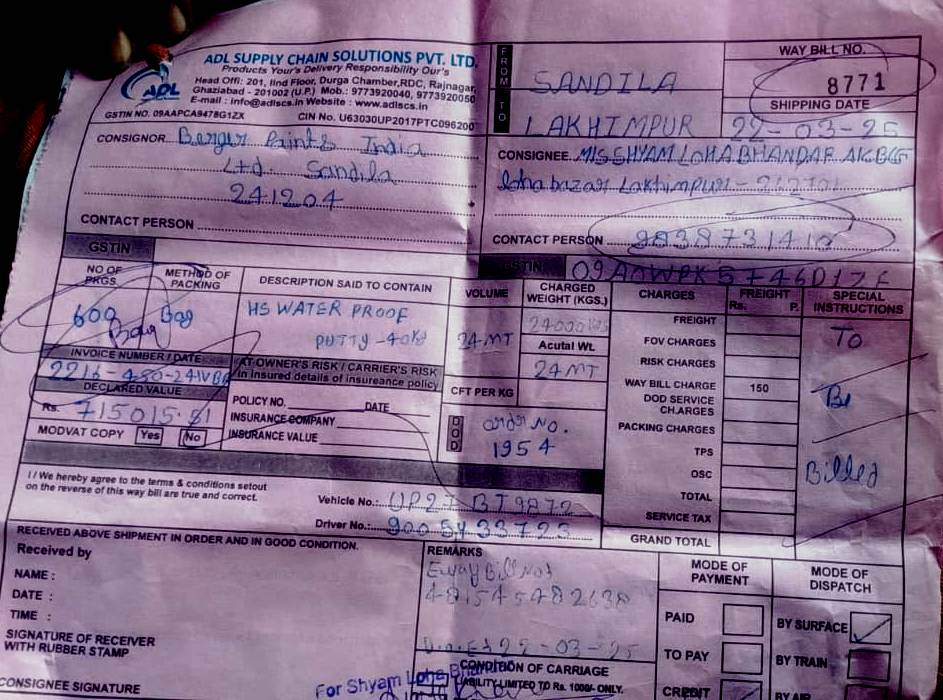 ADL SUPPLY CHAIN SOLUTIONS PVT. LTD.
Products Your's Delivery Responsibility Our's
Head Offi: 201, IInd Floor, Durga Chamber,RDC, Rajnagar,
Ghaziabad - 201002 (U.P.) Mob.: 9773920040, 9773920050
E-mail : info@adlscs.in Website : www.adlscs.in
ADL
GSTIN NO. 09AAPCA9478G1ZX CIN No. U63030UP2017PTC096200
FROM TO
SANDILA
LAKHIMPUR
WAY BILL NO.
8771
SHIPPING DATE
22-03-25
CONSIGNOR. Berger Paints India
Ltd. Sandila
241204
CONTACT PERSON
GSTIN
CONSIGNEE. M/S SHYAM LOHA BHANDAR
loha bazar Lakhimpur - 262701
CONTACT PERSON
GSTIN
NO OF PKGS.
METHOD OF PACKING
DESCRIPTION SAID TO CONTAIN
VOLUME
CHARGED WEIGHT (KGS.)
CHARGES
FREIGHT
Rs. P.
SPECIAL INSTRUCTIONS
600 Bag
Bag
HS WATER PROOF
PUTTY - 40kg
24 MT
24000 KGS
Acutal Wt.
24 MT
CFT PER KG
FREIGHT
FOV CHARGES
RISK CHARGES
WAY BILL CHARGE 150
DOD SERVICE CHARGES
PACKING CHARGES
TPS
OSC
TOTAL
SERVICE TAX
GRAND TOTAL
To
Be
Billed
INVOICE NUMBER / DATE
DECLARED VALUE
Rs. 715015.81
MODVAT COPY Yes No
AT OWNER'S RISK / CARRIER'S RISK
in insured details of insureance policy
POLICY NO. DATE
INSURANCE COMPANY
INSURANCE VALUE
DOD
order No.
1954
I / We hereby agree to the terms & conditions setout
on the reverse of this way bill are true and correct.
Vehicle No.: UP27 BT9872
Driver No.: 9005433723
RECEIVED ABOVE SHIPMENT IN ORDER AND IN GOOD CONDITION.
Received by
NAME :
DATE :
TIME :
SIGNATURE OF RECEIVER
WITH RUBBER STAMP
CONSIGNEE SIGNATURE
REMARKS
Eway Bill No
481545482638
22-03-25
CONDITION OF CARRIAGE
LIABILITY LIMITED TO Rs. 1000/- ONLY.
For Shyam Loha Bhandar
MODE OF PAYMENT
PAID
TO PAY
CREDIT
MODE OF DISPATCH
BY SURFACE
BY TRAIN
BY AIR